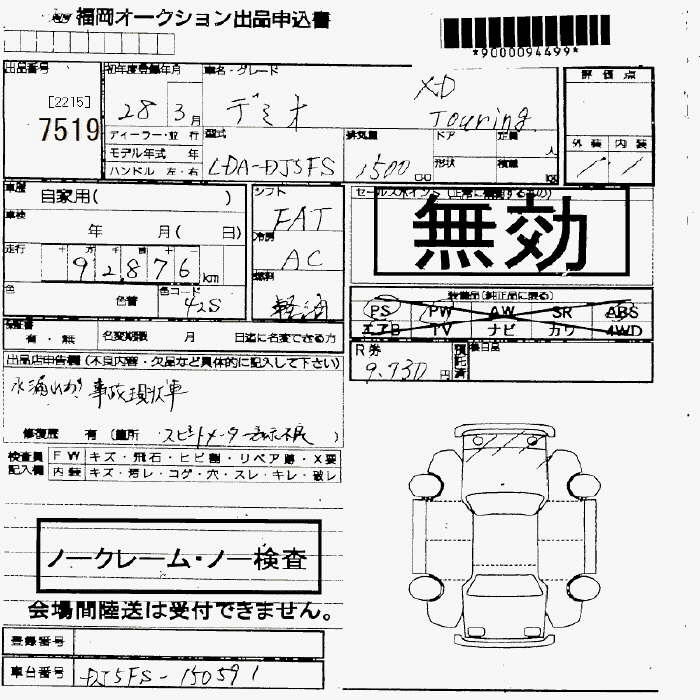 福岡オークション出品申込書
*9000094499*
出品番号
[2215]
7519
初年度登録年月
28 3月
ディーラー・並行
モデル年式 年
ハンドル 左・右
車名・グレード
デミオ
XD
Touring
型式
LDA-DJ5FS
排気量
1500
cc
ドア
形状
定員
人
積載
kg
評価点
外装 内装
車歴
自家用( )
車検
年 月( 日)
走行
十 万 千 百 十 一
92,876 km
色
色替
色コード
42S
シフト
FAT
冷房
AC
燃料
軽油
セールスポイント (正常に機能するもの)
無効
装備品(純正品に限る)
PS PW AW SR ABS
エアB TV ナビ カワ 4WD
保証書
有・無
名変期限 月 日迄に名変できる方
R券
9,730円
預託済
後日品
出品店申告欄(不良内容・欠品など具体的に記入して下さい)
水漏れ有 事故現状車
修復歴 有(箇所 スピードメーター表示不良)
検査員
記入欄
FW キズ・飛石・ヒビ割・リペア跡・X要
内装 キズ・汚レ・コゲ・穴・スレ・キレ・破レ
ノークレーム・ノー検査
会場間陸送は受付できません。
登録番号
車台番号
DJ5FS-150591